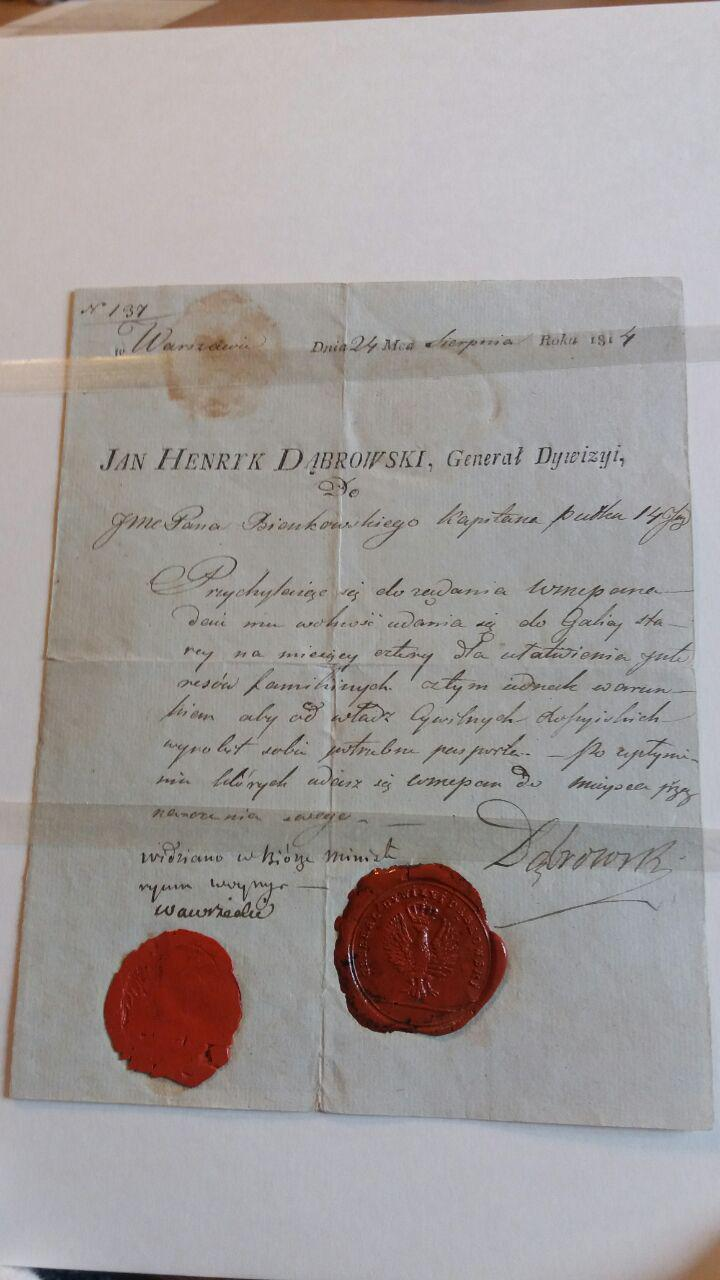 N 137
w Warszawie Dnia 24 Mca Sierpnia Roku 1814
JAN HENRYK DĄBROWSKI, Generał Dywizyi,
Do
JMC Pana Bienkowskiego Kapitana pułku 14
Przychylaiąc się do rządania Wmcpana
daię mu wolność udania się do Galicy sta-
rey na miesięcy cztery dla ułatwienia Inte
resów familiinych z tym iednak warun-
kiem aby od władz Cywilnych
wyrobył sobie potrzebne pasporta. - Po upłynie-
niu których udasz się Wmcpan do miejsca prze
naczenia swego.
Dąbrowski
widziano w Biórze Minist
ryum woyny
Wawrzecki